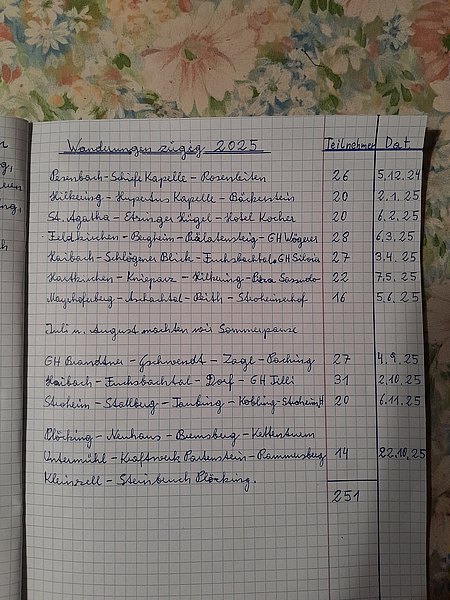 Wanderungen zügig 2025 Teilnehmer Dat
Pesenbach - Schiefe Kapelle - Rosenleiten 26 5.12.24
Hilkering - Hupertus Kapelle - Böckerstein 20 2.1.25
St. Agatha - Etzinger Hügel - Hotel Kocher 20 6.2.25
Feldkirchen - Bergheim - Prälatensteig - GH Wögerer 28 6.3.25
Haibach - Schlögener Blick - Fuchsbachtal GH Silvia 27 3.4.25
Hartkirchen - Knieparz - Hilkering - 22 7.5.25
Mayrhoferberg - Aschachtal - Reith - Stroheinerhof 16 5.6.25
Juli u. August machten wir Sommerpause
GH Brandtner - Gschwendt - Zagl - Paching 27 4.9.25
Haibach - Fuchsbachtal - Dorf - GH Jilli 31 2.10.25
Stroheim - Stallberg - Taubing - Kobling - Stroheim 20 6.11.25
Plöcking - Neuhaus - Bumsberg - Kettenturm
Untermühl - Kraftwerk Partenstein - Rammersberg 14 22.10.25
Kleinzell - Steinbruch Plöcking.
251